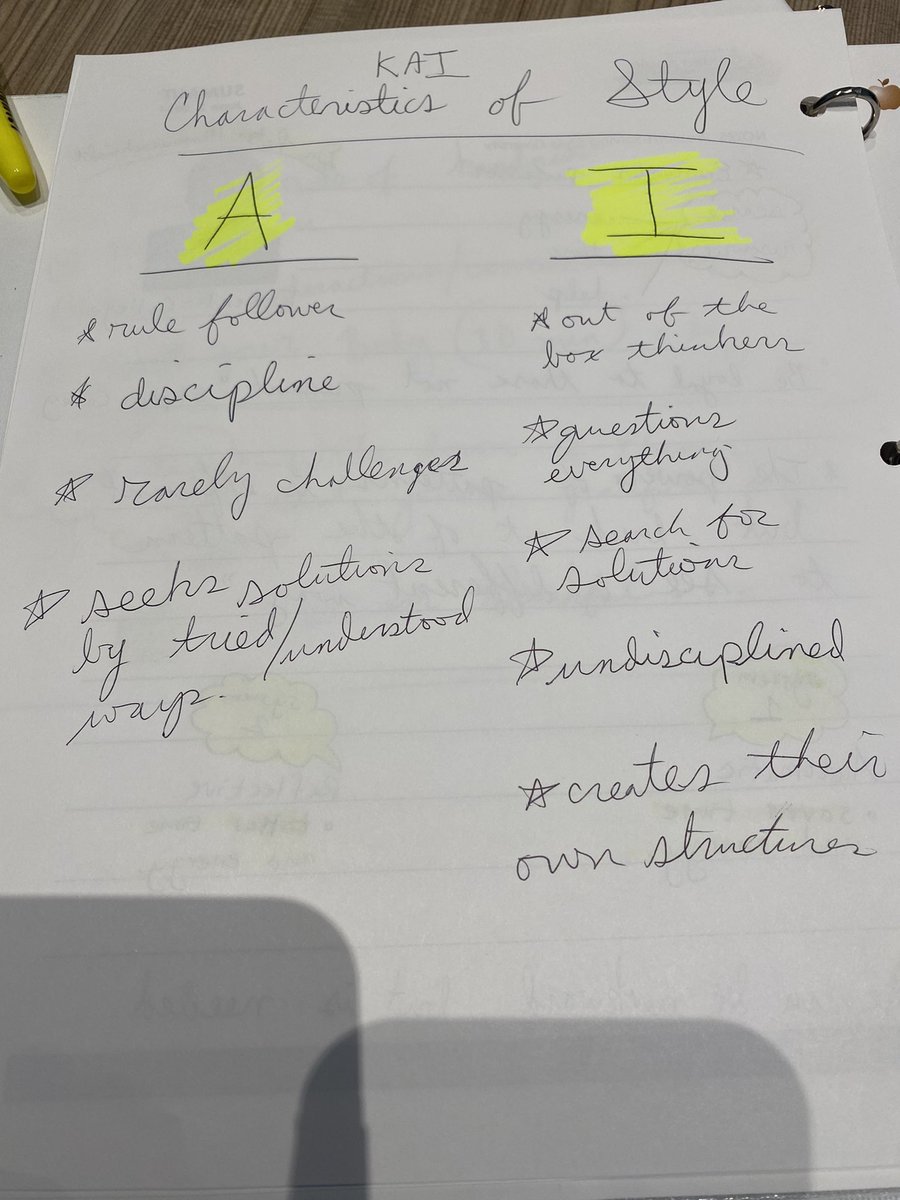 KAI
Characteristics of Style
A
* rule follower
* discipline
* rarely challenges
* seeks solutions
by tried/understood
ways.
I
* out of the
box thinkers
* questions
everything
* search for
solutions
* undisciplined
* creates their
own structures